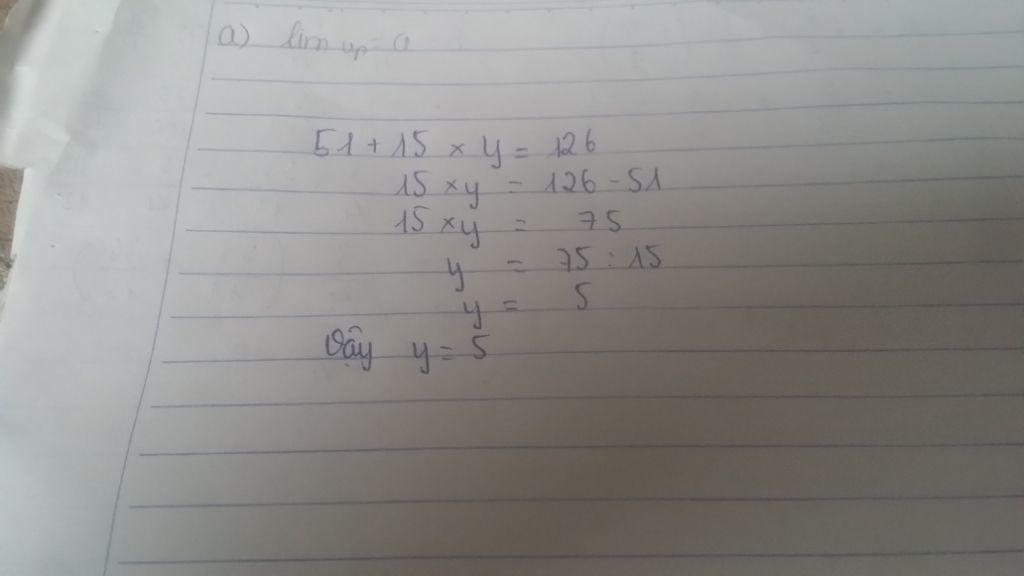 a) lim un = 0
51 + 15 × y = 126
15 × y = 126 - 51
15 × y = 75
y = 75 : 15
y = 5
Vậy y = 5